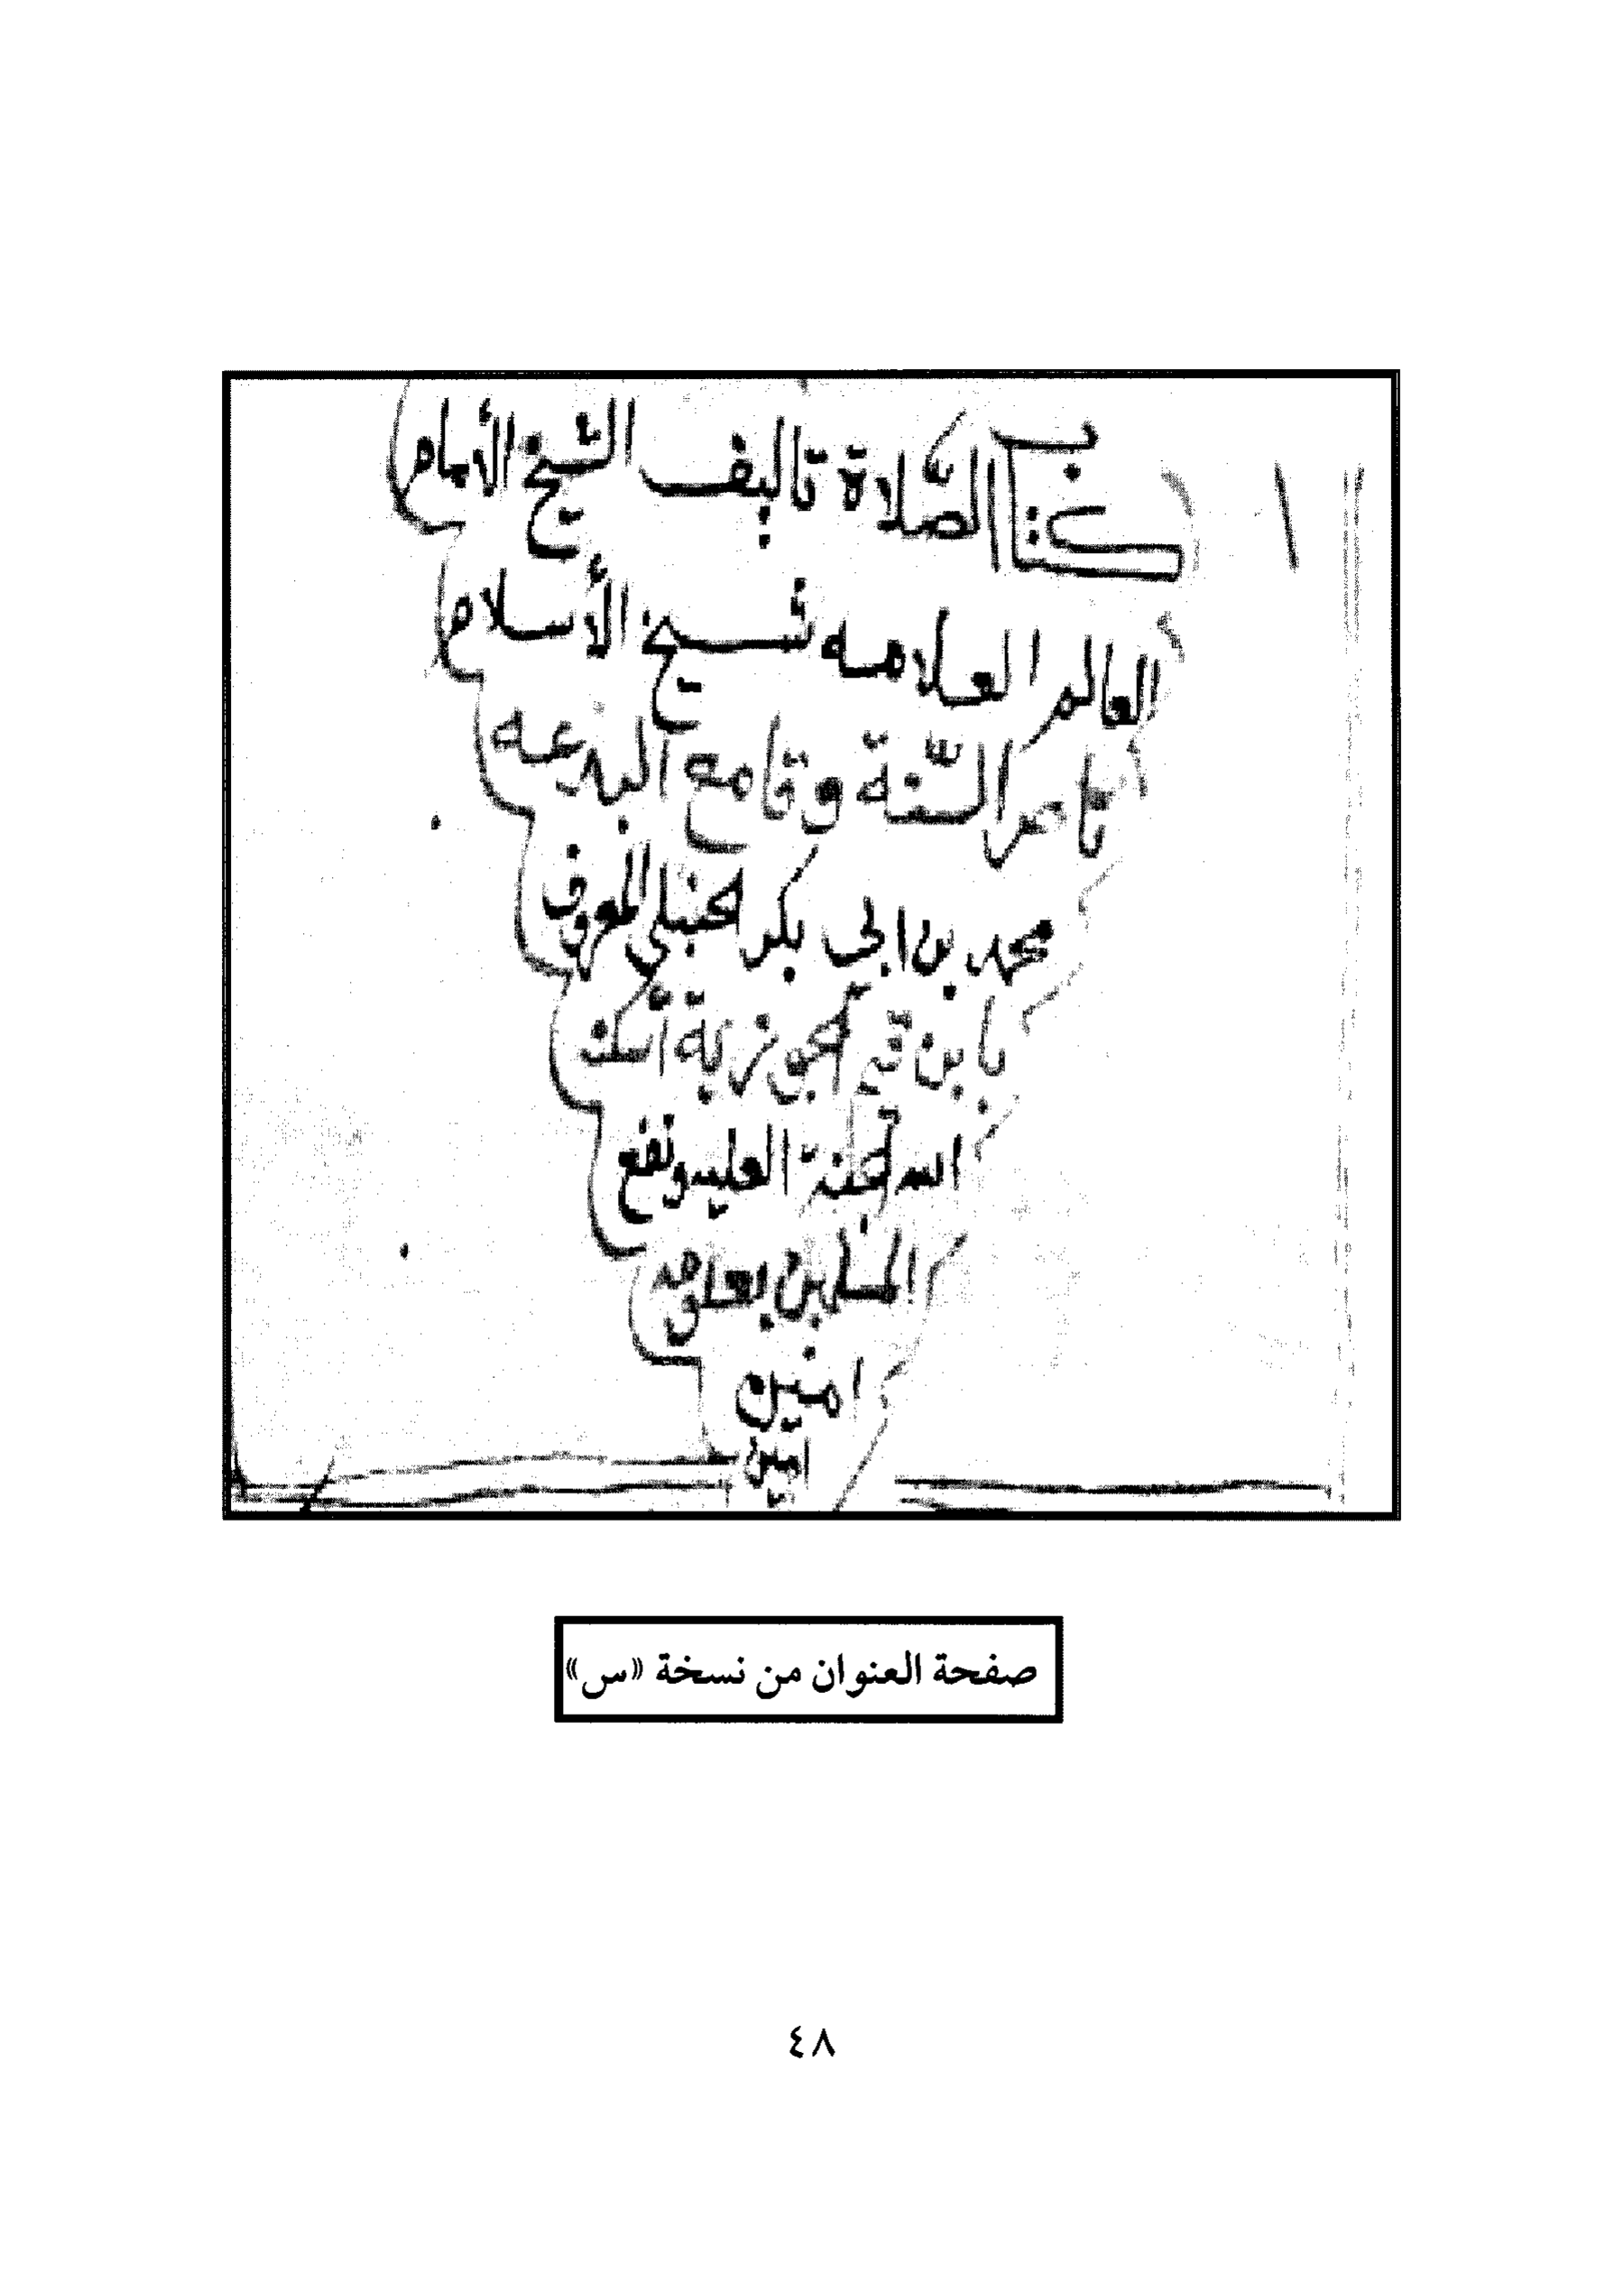 كتاب الصّلاة تاليف الشيخ الأمام
العالم العلامه شيخ الأسلام
ناصر السّنة وقامع البدعه
محمد بن ابي بكر الحنبلي المعروف
بابن قيّم الجوزية أسكنه
الله الجنة العليه ونفع
المسلمين بعلومه
امنين
امين
صفحة العنوان من نسخة «س»
٤٨